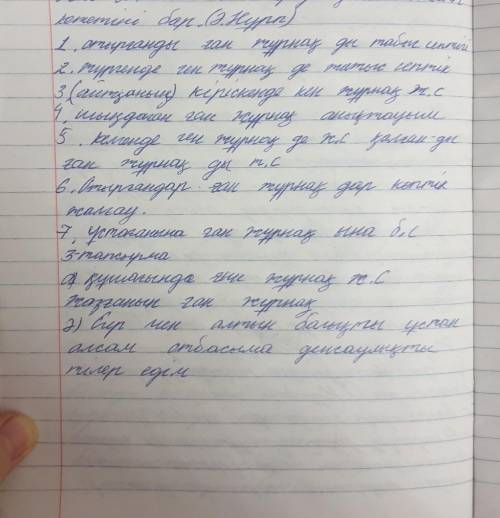 кететіні бар. (Ә.Нұрп)
1. отырғанды ған жұрнақ ды табыс септігі
2. жүргенде ген жұрнақ де жатыс септік
3 (айтқаның) кіріскенде кен жұрнақ ж.с
4. шыңдаған ған жұрнақ анықтауыш
5. келгенде ген жұрнақ де ж.с қалған-ды
ған жұрнақ ды т.с
6. Отырғандар ған жұрнақ дар көптік
жалғау.
7. ұстағанына ған жұрнақ ына б.с
3-тапсырма
а) құшағында жұрнақ ж.с
Жазғанын ған жұрнақ
2) Егер мен алтын балықты ұстап
алсам отбасыма денсаулықты
тілер едім